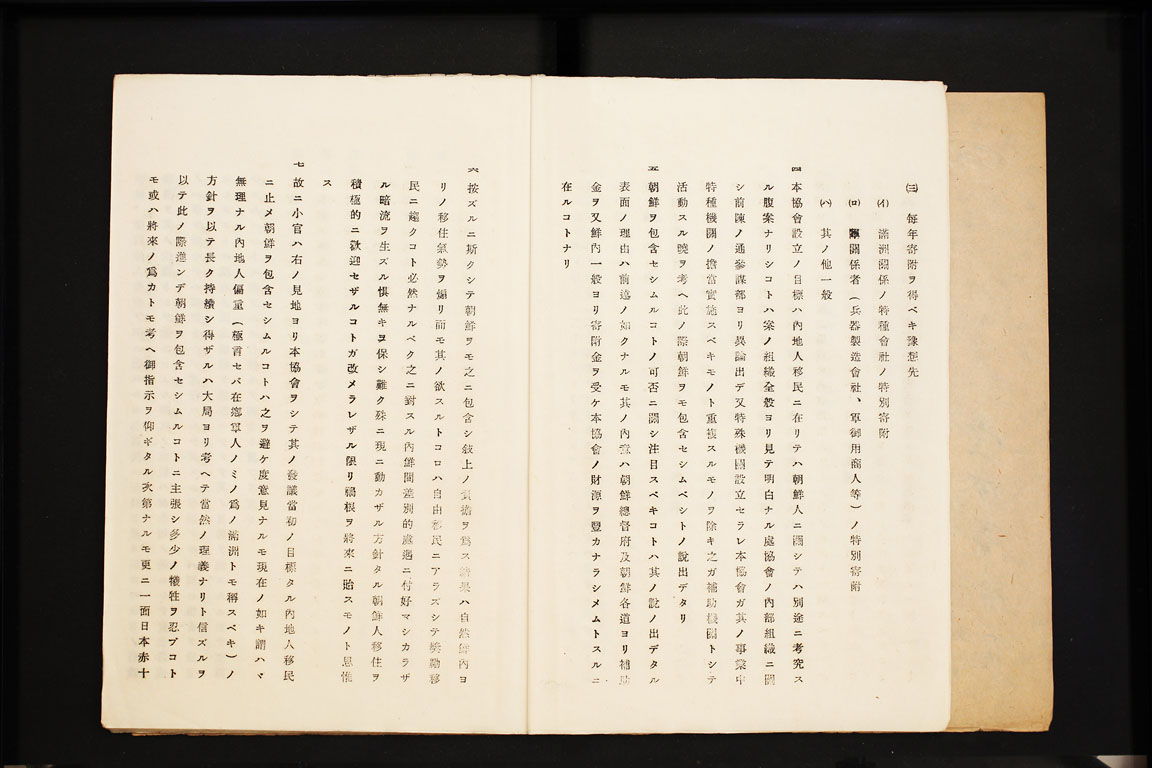 ㈢ 每年寄附ヲ得ベキ豫想先
㈠ 滿洲關係ノ特種會社ノ特別寄附
㈡ 軍關係者（兵器製造會社、軍御用商人等）ノ特別寄附
㈢ 其ノ他一般
四 本協會設立ノ目標ハ內地人移民ニ在リテハ朝鮮人ニ關シテハ別途ニ考究ス
ル腹案ナリシコトハ案ノ組織全般ヨリ見テ明白ナル處協會ノ內部組織ニ關
シ前陳ノ通參謀部ヨリ異論出デ又特殊機關設立セラレ本協會ガ其ノ事業中
特種機關ノ擔當實施スベキモノト重複スルモノヲ除キ之ガ補助機關トシテ
活動スル曉ヲ考ヘ此ノ際朝鮮ヲモ包含セシムベシトノ說出デタリ
五 朝鮮ヲ包含セシムルコトノ可否ニ關シ注目スベキコトハ其ノ說ノ出デタル
表面ノ理由ハ前述ノ如クナルモ其ノ內意ハ朝鮮總督府及朝鮮各道ヨリ補助
金ヲ又鮮內一般ヨリ寄附金ヲ受ケ本協會ノ財源ヲ豐カナラシメムトスルニ
在ルコトナリ
六 按ズルニ斯クシテ朝鮮ヲモ之ニ包含シ敍上ノ負擔ヲ爲ス結果ハ自然鮮內ヨ
リノ移住氣勢ヲ煽リ而モ其ノ欲スルトコロハ自由移民ニアラズシテ獎勵移
民ニ趨クコト必然ナルベク之ニ對スル內鮮間差別的處遇ニ付好マシカラザ
ル暗流ヲ生ズル惧無キヲ保シ難ク殊ニ現ニ動カザル方針タル朝鮮人移住ヲ
積極的ニ歡迎セザルコトガ改メラレザル限リ禍根ヲ將來ニ貽スモノト思惟
ス
七 故ニ小官ハ右ノ見地ヨリ本協會ヲシテ其ノ發議當初ノ目標タル內地人移民
ニ止メ朝鮮ヲ包含セシムルコトハ之ヲ避ケ度意見ナルモ現在ノ如キ謂ハヾ
無理ナル內地人偏重（極言セバ在鄕軍人ノミノ爲ノ滿洲トモ稱スベキ）ノ
方針ヲ以テ長ク持續シ得ザルハ大局ヨリ考ヘテ當然ノ理義ナリト信ズルヲ
以テ此ノ際進ンデ朝鮮ヲ包含セシムルコトニ主張シ多少ノ犧牲ヲ忍ブコト
モ或ハ將來ノ爲カトモ考ヘ御指示ヲ仰ギタル次第ナルモ更ニ一面日本赤十